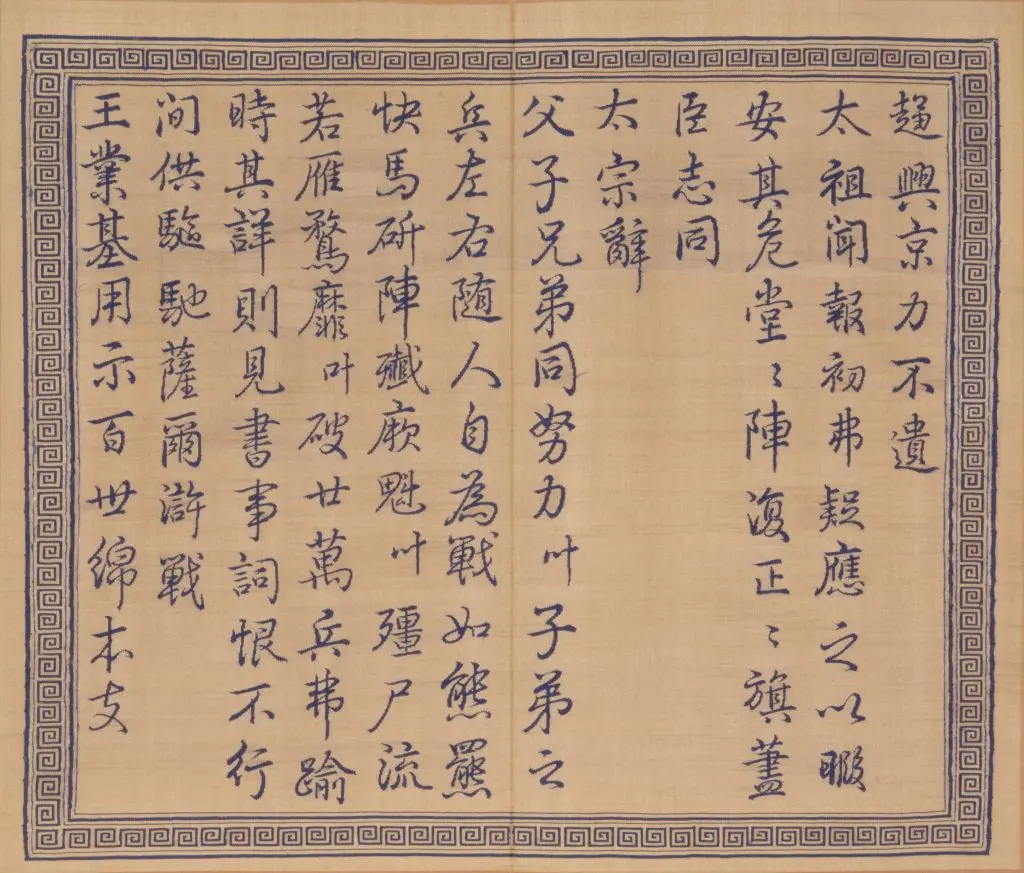 趨興京力不遺
太祖聞報初弗疑應之以暇
安其危堂〻陣復正〻旗蓋
臣志同
太宗辭
父子兄弟同努力叶子弟之
兵左右随人自為戰如熊羆
快馬斫陣殲厥魁叶殭尸流
若雁鶩靡叶破廿萬兵弗踰
時其詳則見書事詞恨不行
间供驅馳薩爾滸戰
王業基用示百世綿本支